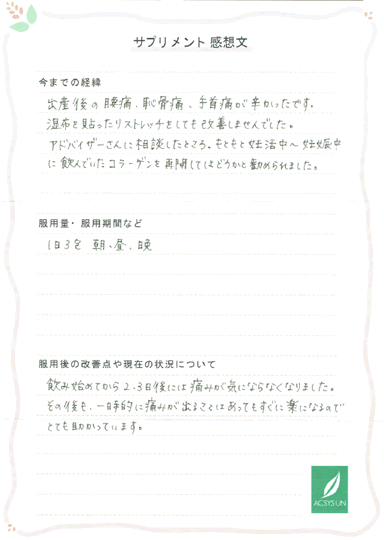 サプリメント 感想文
今までの経緯
出産後の腰痛、恥骨痛、手首痛が辛かったです。
湿布を貼ったりストレッチをしても改善しませんでした。
アドバイザーさんに相談したところ、もともと妊活中〜妊娠中
に飲んでいたコラーゲンを再開してはどうかと勧められました。
服用量・服用期間など
1日3包 朝、昼、晩
服用後の改善点や現在の状況について
飲み始めてから2、3日後には痛みが気にならなくなりました。
その後も、一時的に痛みが出ることはあってもすぐに楽になるので
とても助かっています。
ACSYSUN